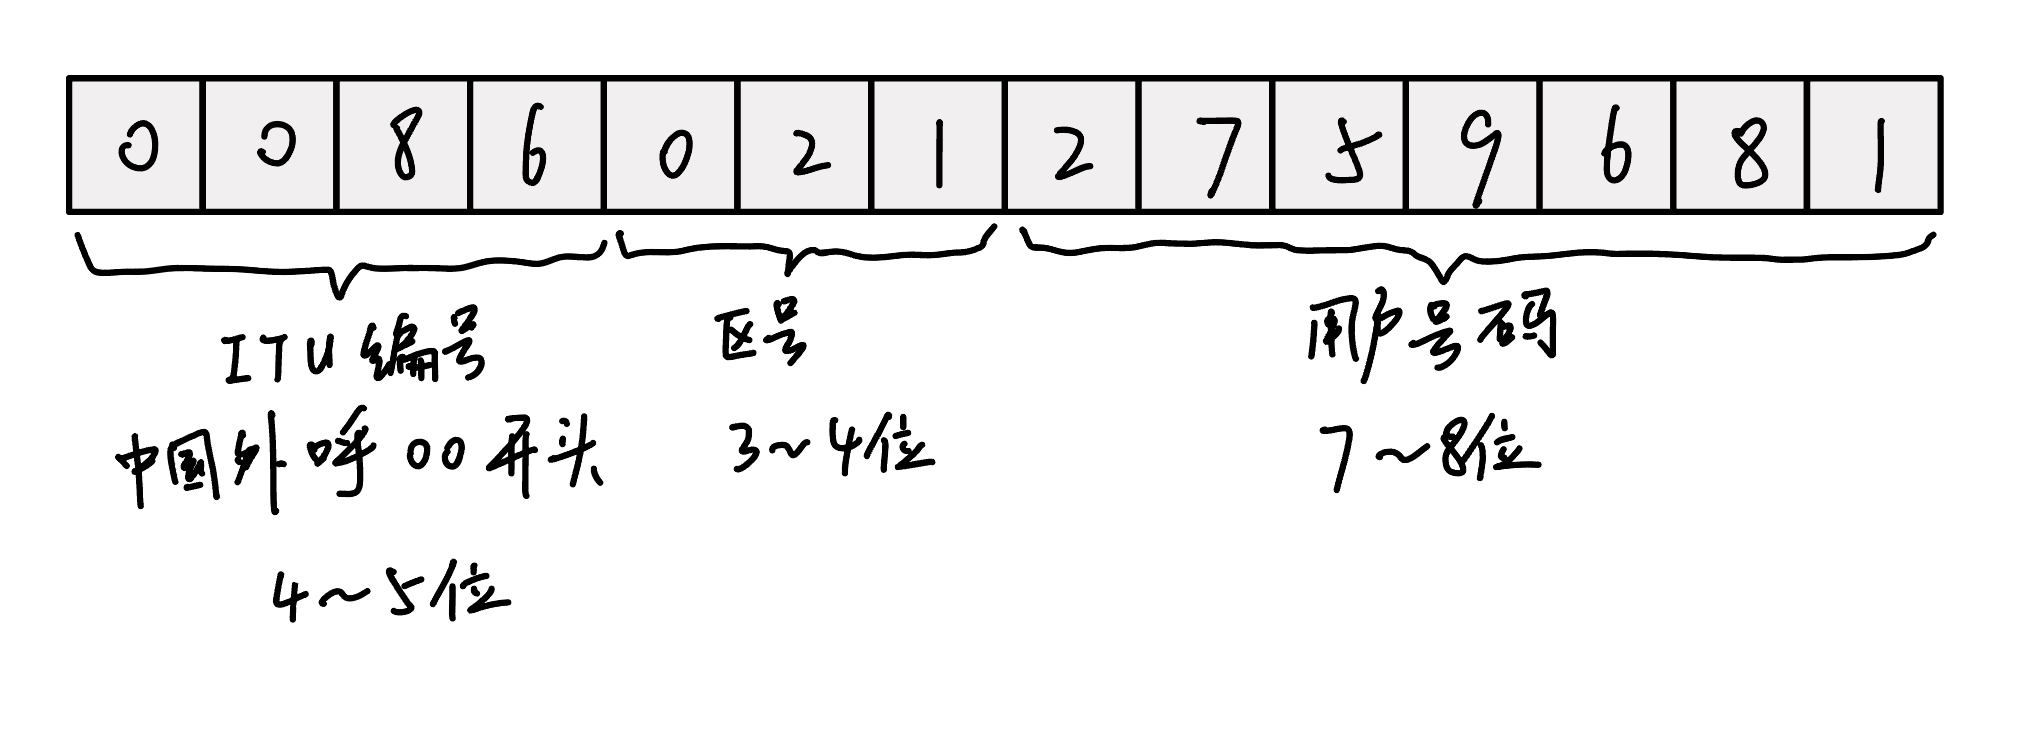 0 0 8 6 0 2 1 2 7 5 9 6 8 1
ITU编号
中国外呼00开头
4~5位
区号
3~4位
用户号码
7~8位